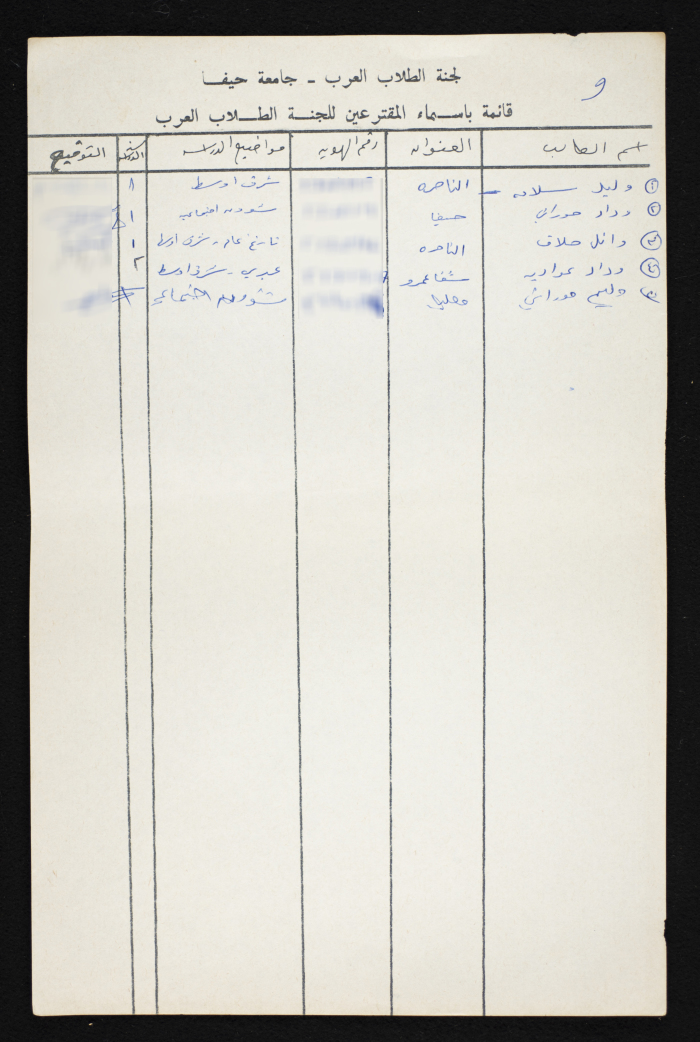 لجنة الطلاب العرب - جامعة حيفا
و
قائمة باسماء المقترعين للجنة الطلاب العرب
اسم الطالب العنوان رقم الهوية مواضيع الدراسه سنة الدراسة التوقيع
١ وليد سلامه الناصره شرق اوسط ١
٢ وداد حوراني حيفا شؤون اجتماعيه ١
٣ وائل حلاق الناصره تاريخ عام - شرق اوسط ١
٤ وداد عواديه شفاعمرو عبري - شرق اوسط ٢
٥ وليم حوراني شؤون اجتماعي